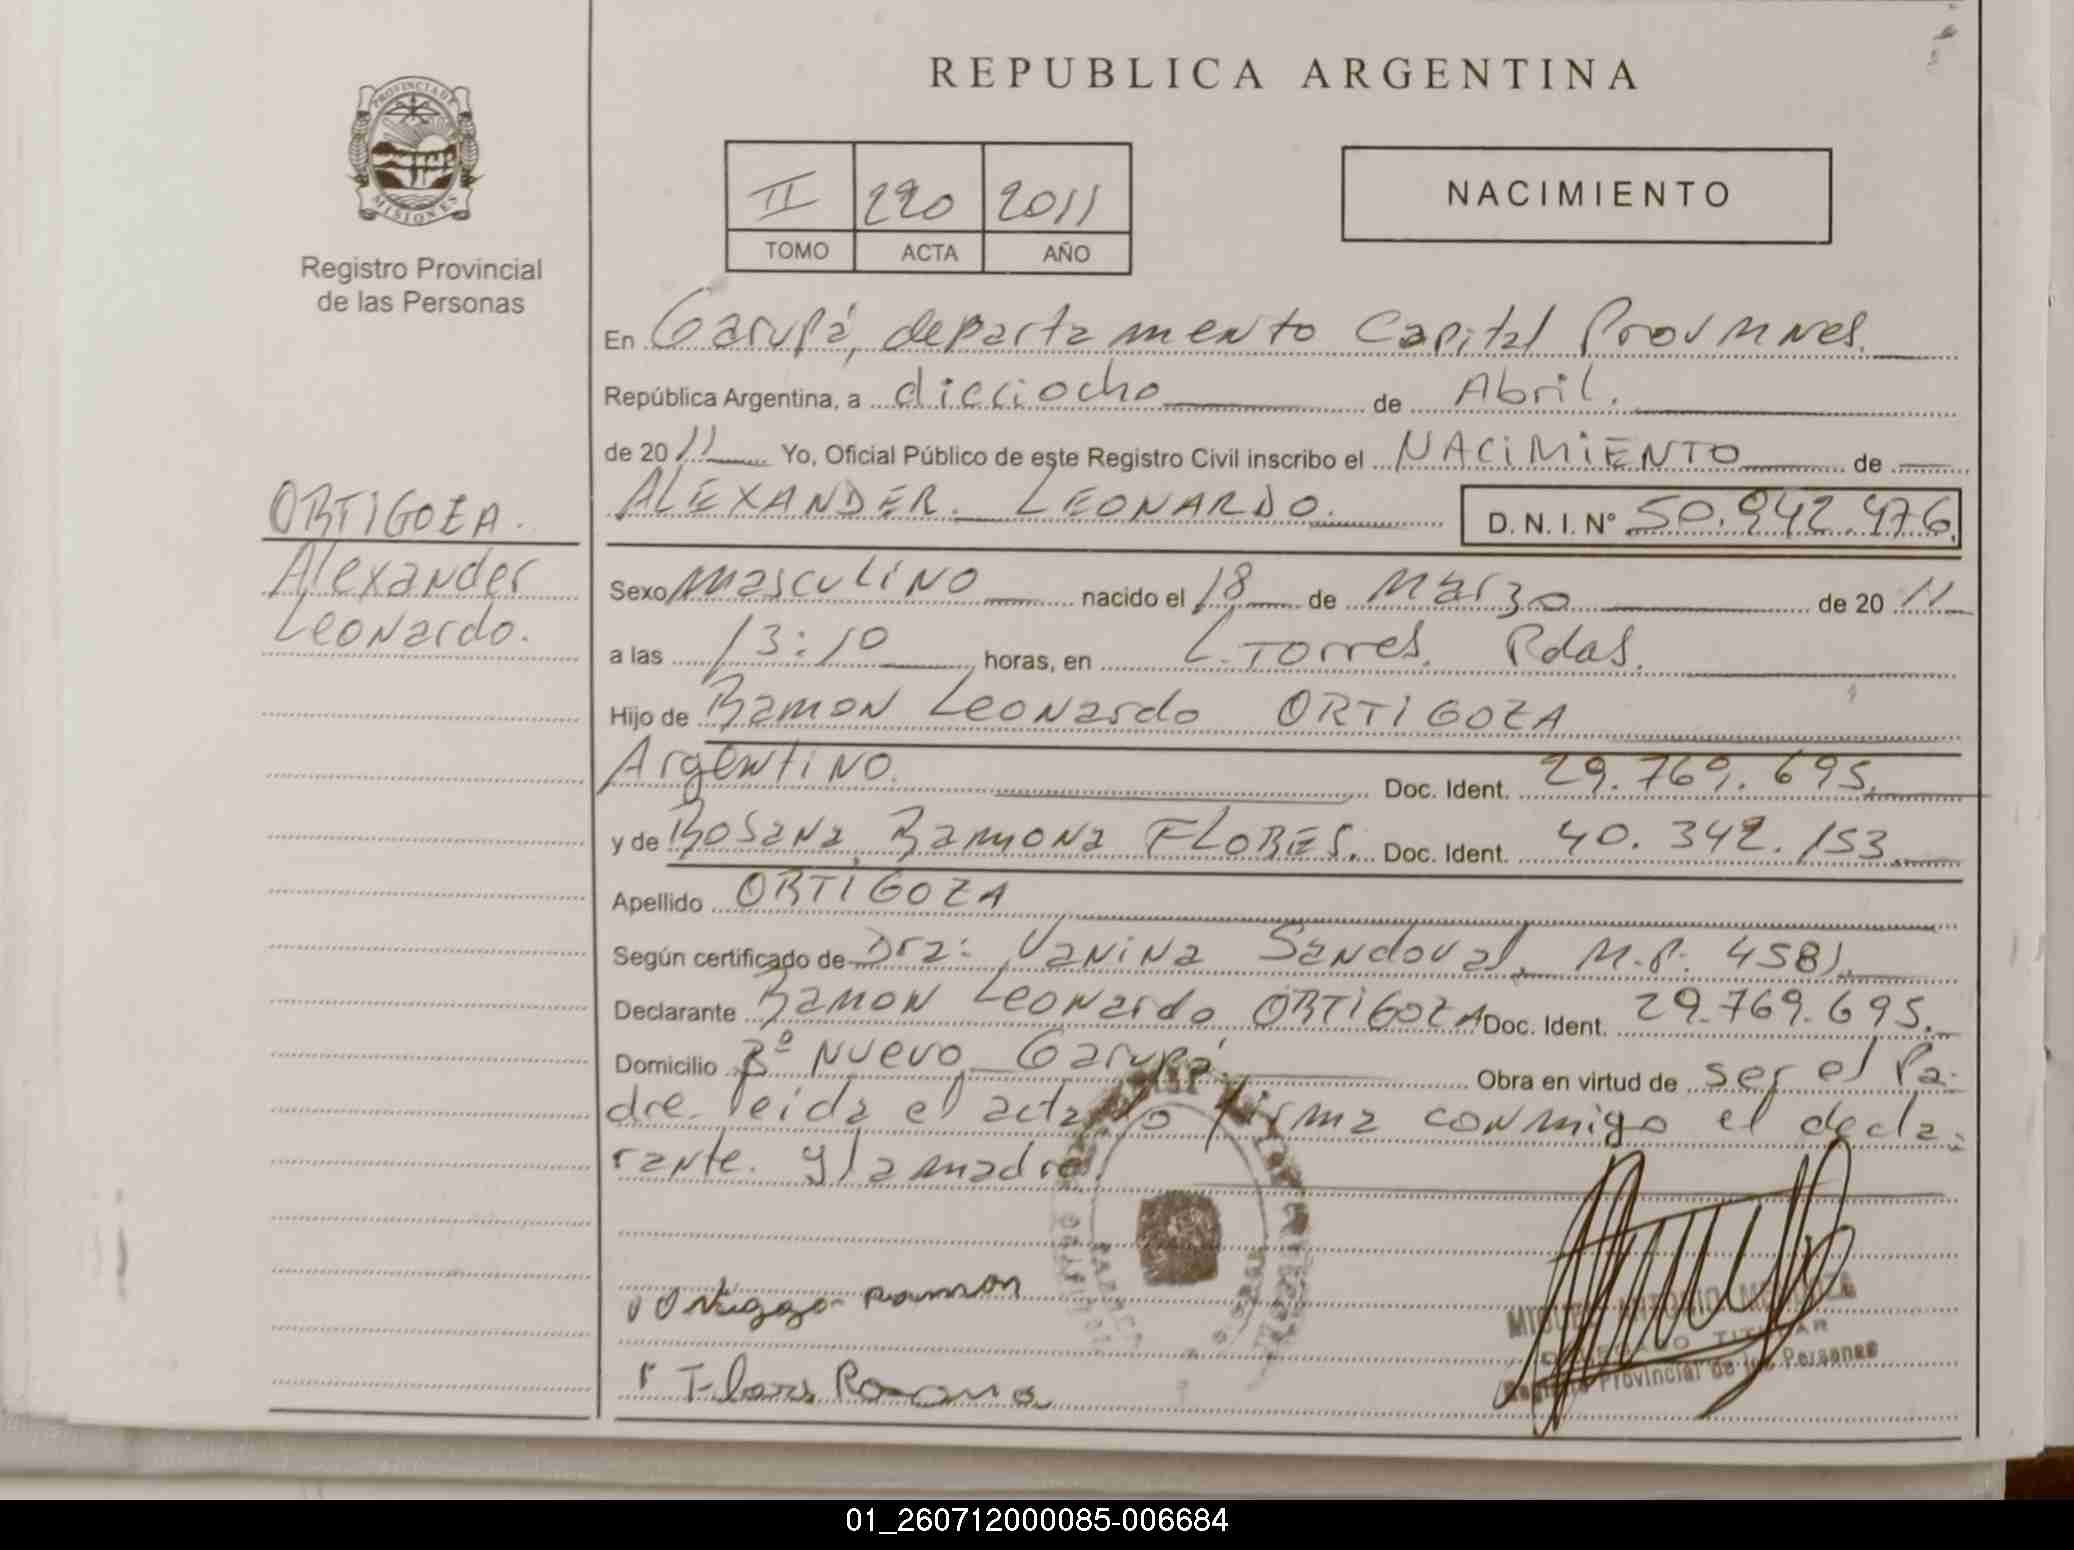 REPUBLICA ARGENTINA
PROVINCIA DE
MISIONES
Registro Provincial
de las Personas
II 220 2011
TOMO ACTA AÑO
NACIMIENTO
En Garupá, departamento Capital Prov Mnes.
República Argentina, a dieciocho de Abril.
de 2011 Yo, Oficial Público de este Registro Civil inscribo el NACIMIENTO de
ALEXANDER LEONARDO. D. N. I. Nº 50.942.476
ORTIGOZA.
Alexander
Leonardo.
Sexo Masculino nacido el 18 de Marzo de 2011
a las 13:10 horas, en L. Torres. Pdas.
Hijo de Ramon Leonardo ORTIGOZA
Argentino. Doc. Ident. 29.769.695.
y de Rosana Ramona FLORES. Doc. Ident. 40.342.153
Apellido ORTIGOZA
Según certificado de Dra: Vanina Sandoval, M.P. 4581.
Declarante Ramon Leonardo ORTIGOZA Doc. Ident. 29.769.695.
Domicilio Bº Nuevo Garupá Obra en virtud de ser el Pa-
dre. leida el acta lo firma conmigo el decla-
rante. y la madre.
Ramon
Flores
MIGUEL ANTONIO
DELEGADO TITULAR
Registro Provincial de las Personas
01_260712000085-006684